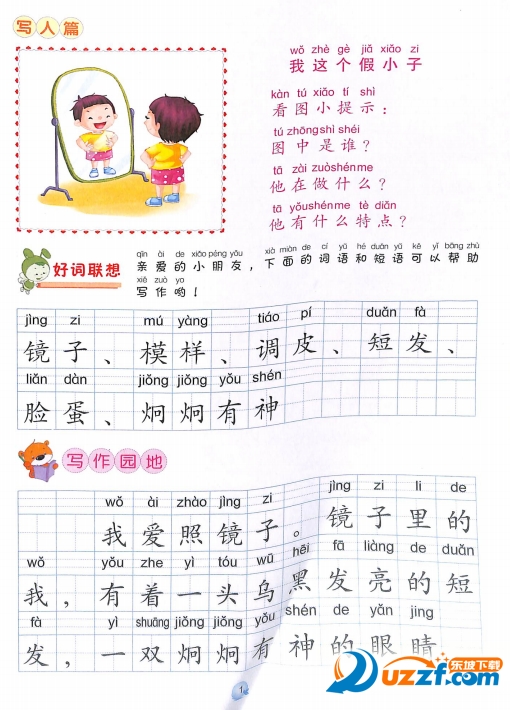 写人篇
wǒ zhè gè jiǎ xiǎo zi
我这个假小子
kàn tú xiǎo tí shì
看图小提示：
tú zhōng shì shéi
图中是谁？
tā zài zuò shén me
他在做什么？
tā yǒu shén me tè diǎn
他有什么特点？
好词联想
qīn ài de xiǎo péng yǒu xià miàn de cí yǔ hé duǎn yǔ kě yǐ bāng zhù
亲爱的小朋友，下面的词语和短语可以帮助
xiě zuò yo
写作哟！
jìng zi mú yàng tiáo pí duǎn fà
镜子、模样、调皮、短发、
liǎn dàn jiǒng jiǒng yǒu shén
脸蛋、炯炯有神
写作园地
wǒ ài zhào jìng zi jìng zi li de
我爱照镜子。镜子里的
wǒ yǒu zhe yì tóu wū hēi fā liàng de duǎn
我，有着一头乌黑发亮的短
fà yì shuāng jiǒng jiǒng yǒu shén de yǎn jing
发，一双炯炯有神的眼睛
1
东坡下载
uzzf.com